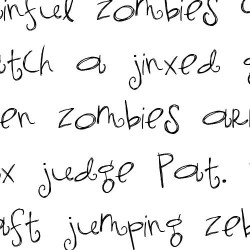 inful zombies a
atch a jinxed g
en zombies are
ox judge Pat.
aft jumping zeb